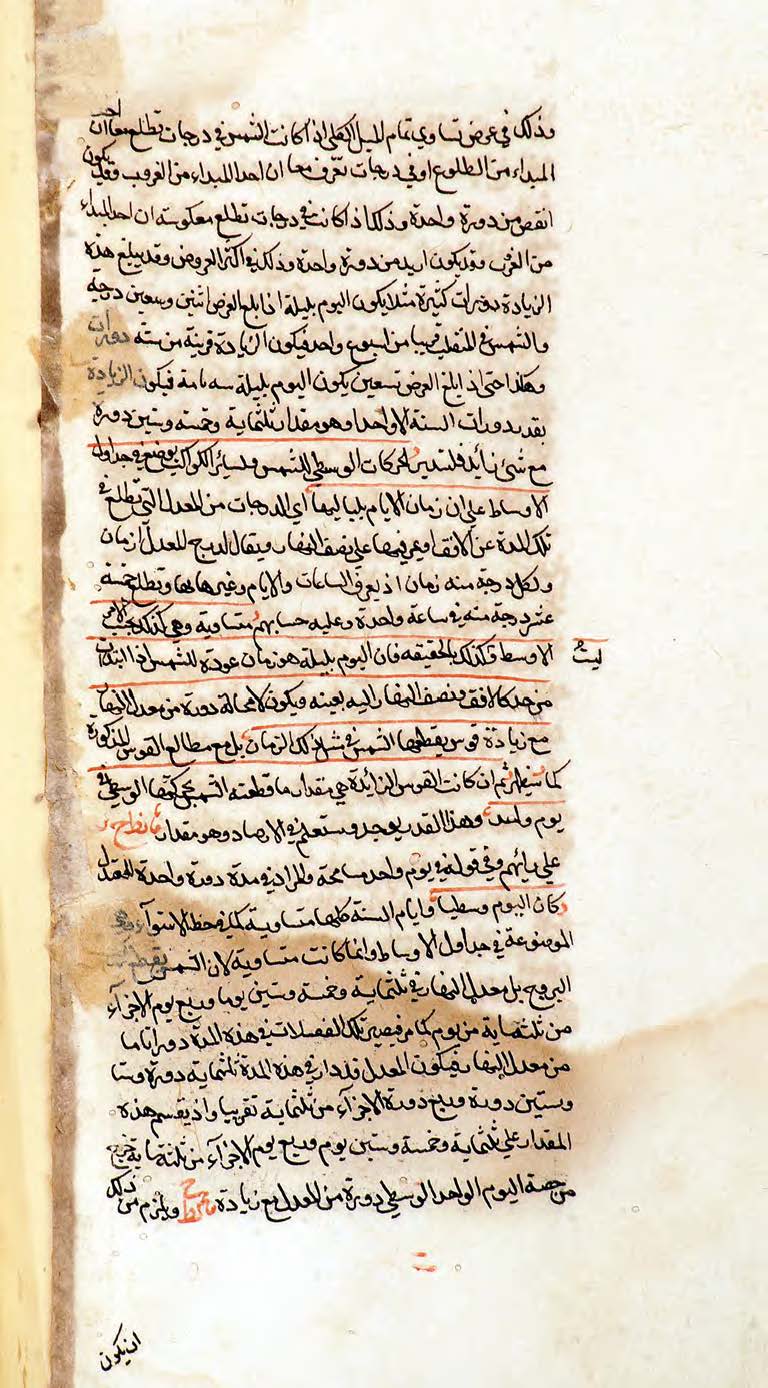 وذلك في عرض تساوي تمام للميل الكلي اذا كانت الشمس في درجات تطلع معا ان احد
المبداء من الطلوع او في درجات تعرف معا ان احد اللبداء من الغروب وقد يكون
انقص من دورة واحدة وذلك اذ كانت في درجات تطلع معكوسته ان احد المبداء
من الغرب وقد يكون ازيد من دورة واحدة وذلك في اكثر العروض وقد يبلغ هذه
الزيادة دورات كثيرة مثلا يكون اليوم بليلة اذا بلغ العرض اثنين وسعين درجة
والشمس في المنقلب قريبا من اسبوع واحد فيكون الزيادة قريبة من سته دورات
وهكذا حتى اذا بلغ العرض تسعين يكون اليوم بليلة سنه تامة فيكون الزيادة
بقدر دورات السنة الا واحدا وهو مقدار ثلثماية وخمسة وستين دورة
مع شئ زائد فلتدير لحركات الوسطي للشمس ولسائر الكواكب يوضع في جداول
الاوساط علي ان زمان الايام بلياليها اي الدرجات من المعدل التي تطلع في
تلك المدة عن الافق او عرضها علي نصف النهار ويقال لدرج المعدل ازمان
ولكل درجة منه زمان اذ يعرف الساعات والايام وغيرها بها وتطلع خمسة
عشر درجة منه في ساعة واحدة وعليه حسابهم متساوية وهي كذلك بحسب الامر
الاوسط وكذلك بالحقيقه فان اليوم بليلة هو زمان عودة للشمس اذا ابتدات
ليست
من حد كالافق ونصف النهار اليه بعينه ويكون لا محالة دورة من معدل النهار
مع زيادة قوس يقطعها الشمس في مثل ذلك الزمان بل مع مطالع القوس المذكورة
كما سيظهر ثم ان كانت القوس الزائدة هي مقدار ما قطعته الشمس بحركتها الوسطي في
يوم واحد وهذا القدر يوجد ويستعلم في الارصاد وهو مقدار نط ح
علي رائهم وفي قوله في يوم واحد مسامحة والمراد في مدة دورة واحدة للمعدل
كان اليوم وسطيا وايام السنة كلها متساوية كل في خط الاستوآء وهي
الموضوعة في جداول الاوساط وانما كانت متساوية لان الشمس يقطع
البروج بل معدل النهار في ثلثماية وخمسة وستين يوما وربع يوم الا جزآء
من ثلثماية من يوم كما مر فيصير تلك الفصلات في هذه المدة دورا تاما
من معدل النهار فيكون المعدل قد دار في هذه المدة ثلثماية دورة وستا
وستين دورة وربع دورة الا جزآء من ثلثماية تقريبا واذ يقسم هذه
المقدار علي ثلثماية وخمسة وستين يوم وربع يوم الا جزآء من ثلثماية يخرج
من حصة اليوم الواحد الوسطي دورة من المعدل مع زيادة نط ح ويلزم من ذلك
ان يكون